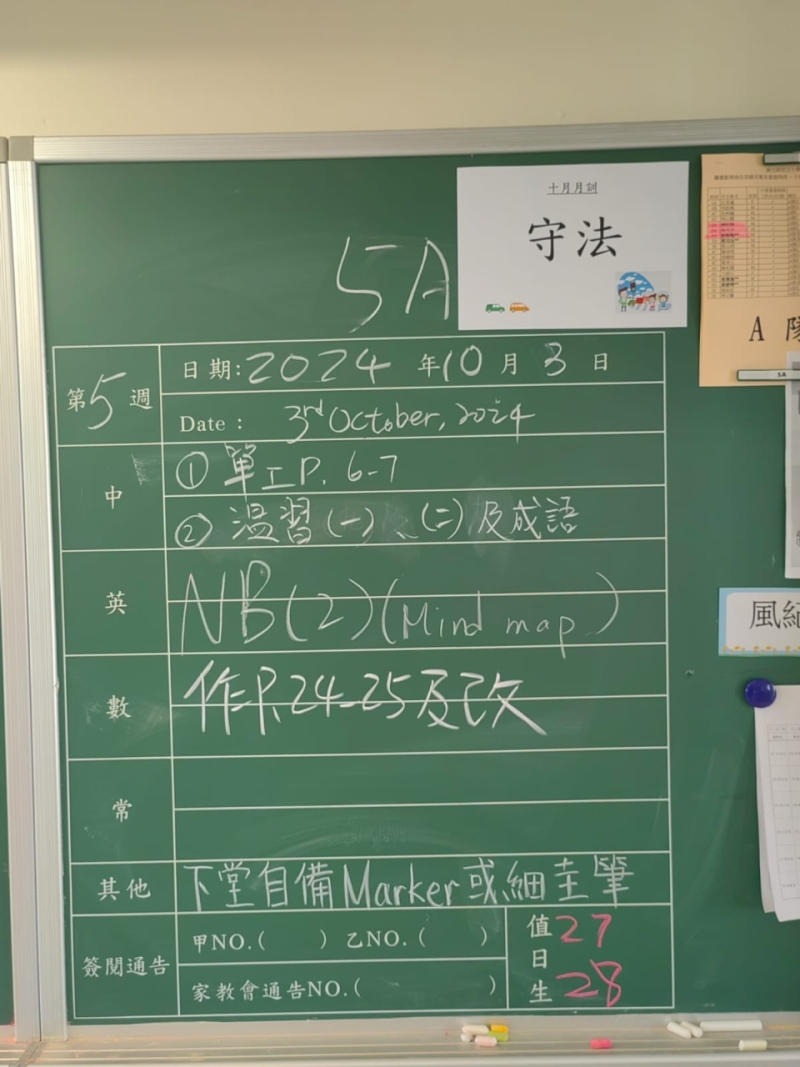 十月月訓
守法
5A
第5週
日期:2024年10月3日
Date : 3rd October, 2024
中
① 單工P. 6-7
② 温習(一)、(二)及成語
英
NB(2)(Mind map)
數
作P.24-25及改
常
其他
下堂自備Marker或細圭筆
簽閱通告
甲NO.( ) 乙NO.( )
家教會通告NO.( )
值日生
27
28
A 隊
5A
風紀